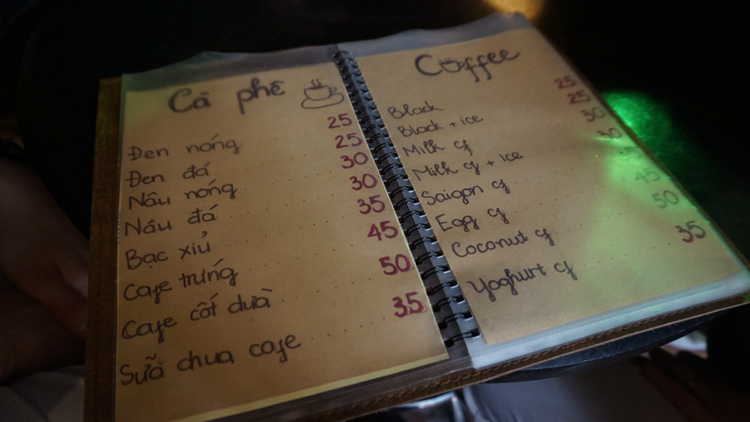 Cà phê
Đen nóng 25
Đen đá 25
Nâu nóng 30
Nâu đá 30
Bạc xỉu 35
Cafe trứng 45
Cafe cốt dừa 50
Sữa chua cafe 35
Coffee
Black 25
Black + ice 25
Milk cf 30
Milk cf + ice 30
Saigon cf
Egg cf 45
Coconut cf 50
Yoghurt cf 35